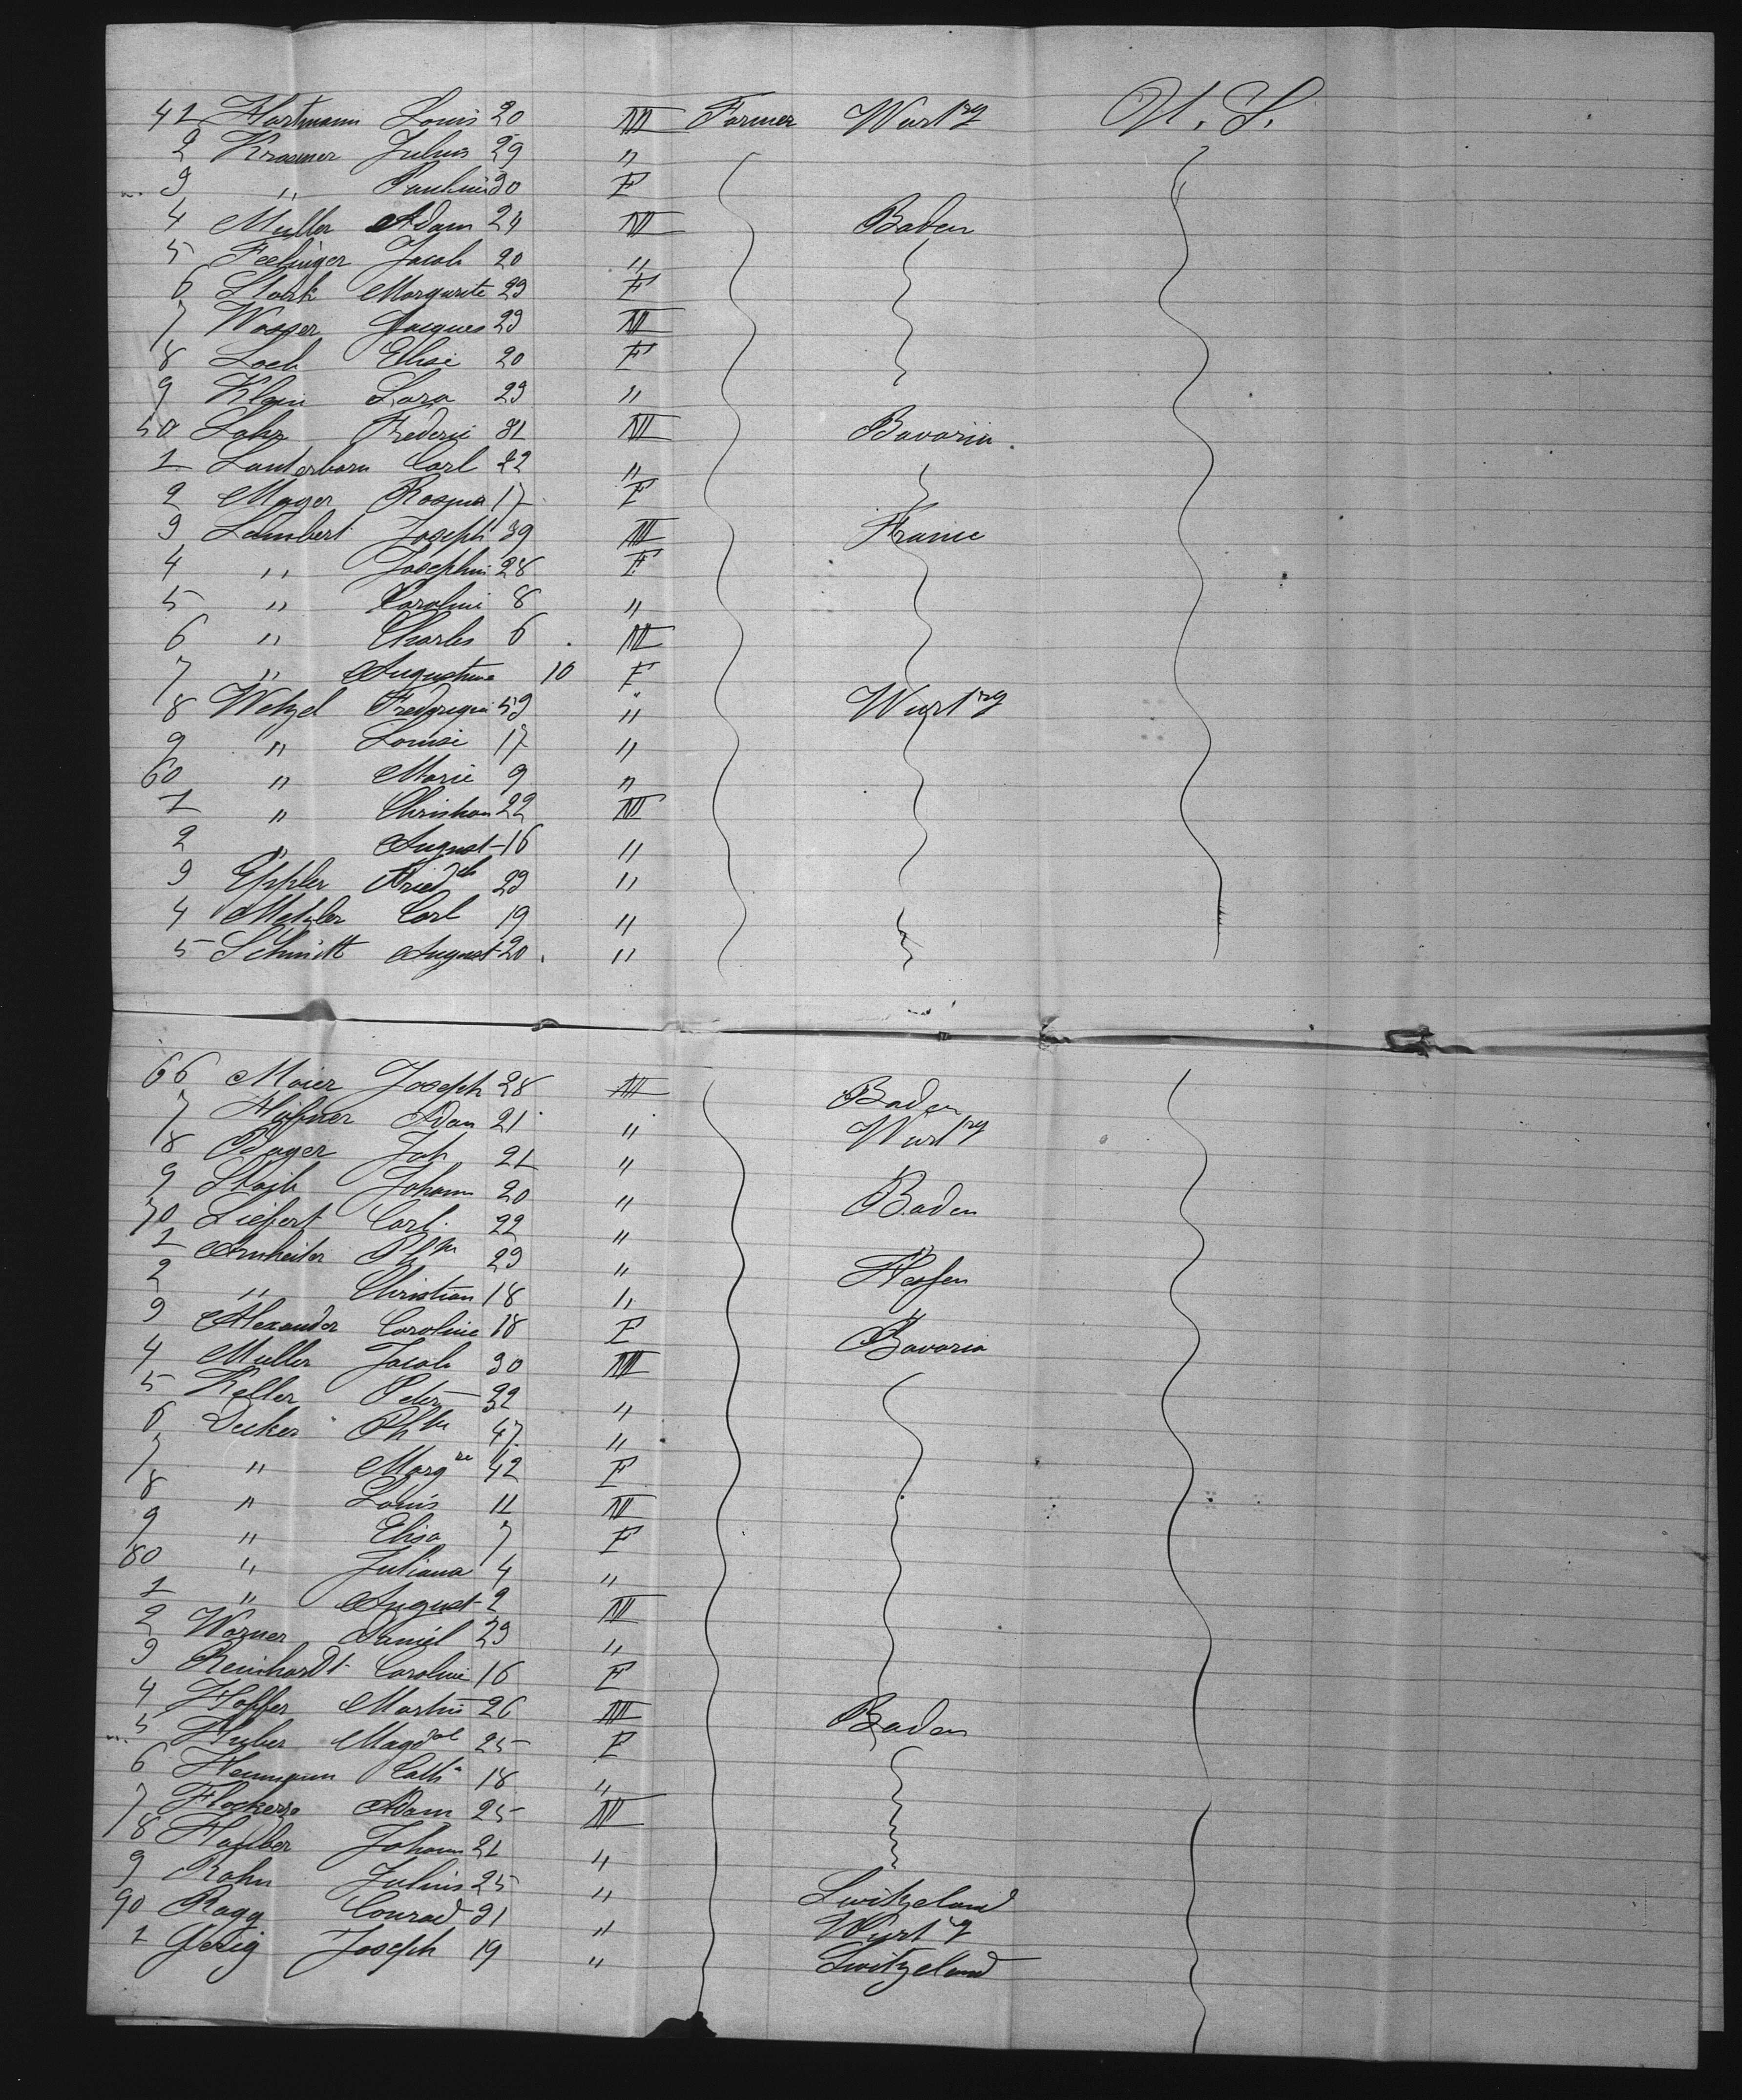 41 Hartmann Louis 20 M Farmer Wurtbg U. S.
2 Krasmer Julius 29 "
3 " Pauline 30 F
4 Muller Adam 24 M Baden
5 Jacob 20 "
6 Stark Margarete 23 F
7 Wasser Jacques 23 M
8 Loeb Elise 20 F
9 Klein Sara 23 "
50 Lahr Frederic 31 M Bavaria.
1 Lauterborn Carl 22 "
2 Mayer Rosina 17 F
3 Lambert Joseph 39 M France
4 " Josephin 28 F
5 " Carolini 8 "
6 " Charles 6 M
7 " Augustine 10 F
8 Wetzel 53 " Wurtbg
9 " Louise 17 "
60 " Marie 9 "
1 " Christian 22 M
2 " August 16 "
3 Eppler Friedch 23 "
4 Metzler Carl 19 "
5 Schmitt August 20 "
66 Maier Joseph 28 M Baden
7 Adam 21 " Wurtbg
8 Joh 21 "
9 Staib Johann 20 " Baden
70 Liefert Carl 22 "
1 Arnheiter Phpe 23 " Hessen
2 " Christian 18 "
3 Alexander Caroline 18 F Bavaria
4 Muller Jacob 30 M
5 Keller Peter 32 "
6 Decker Phpe 47 "
7 " Margre 42 F
8 " Louis 11 M
9 " Elisa 7 F
80 " Juliana 4 "
1 " August 2 M
2 Warner Daniel 23 "
3 Reinhardt Caroline 16 F
4 Hoffer Martin 26 M Baden
5 Huber Magdal 25 F
6 Hermann Cath 18 "
7 Adam 25 M
8 Johann 21 "
9 Rahn Julius 25 " Switzeland
90 Ragg Conrad 21 " Wurtg
1 Gerig Joseph 19 " Switzeland